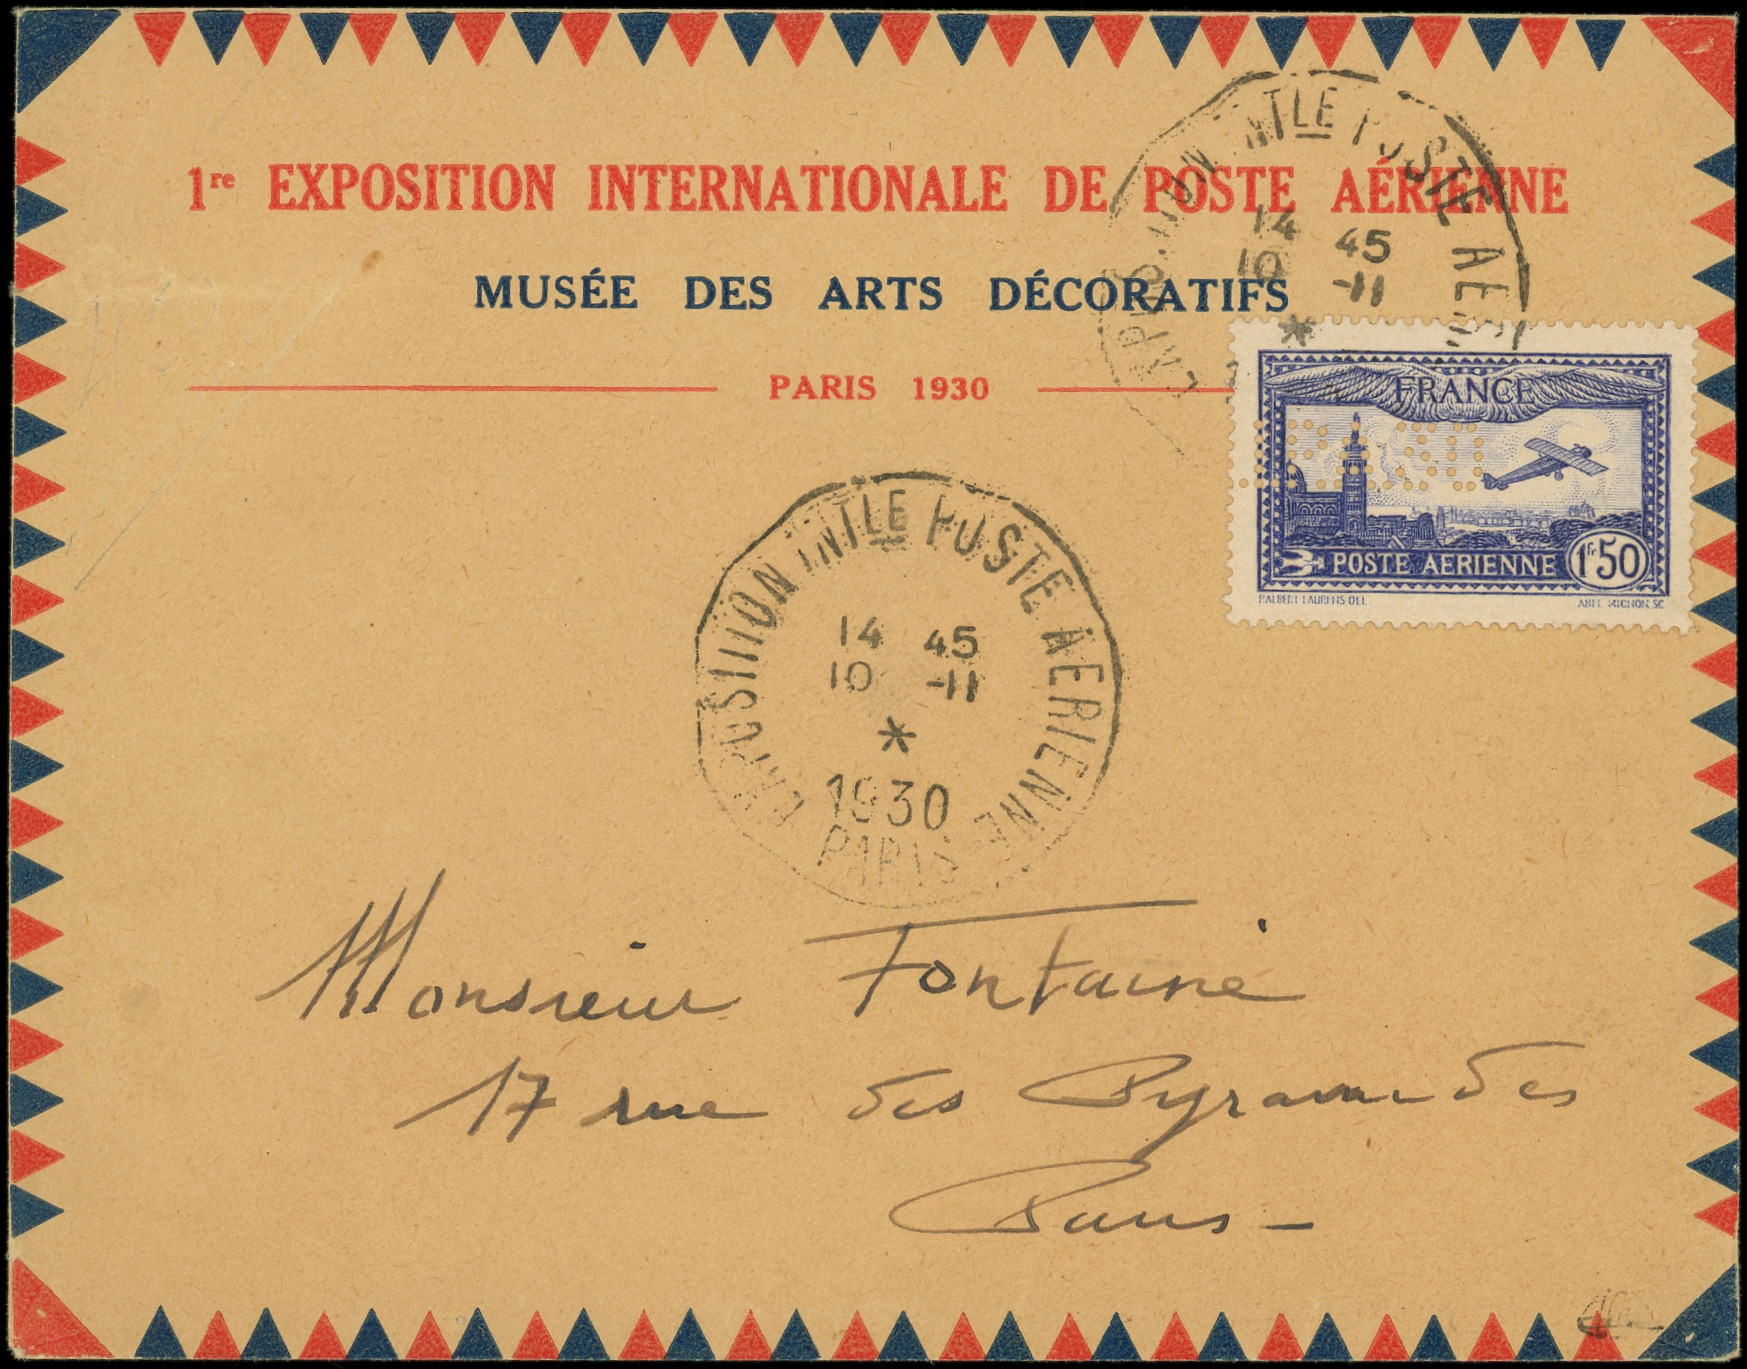 1re EXPOSITION INTERNATIONALE DE POSTE AÉRIENNE
MUSÉE DES ARTS DÉCORATIFS
PARIS 1930
EXPOSITION INTLE POSTE AER
14 45
10 -11
*
FRANCE
E.I.P.A.30
POSTE AERIENNE 1Fr50
P. ALBERT LAURENS DEL. ABEL MIGNON SC
EXPOSITION INTLE POSTE AERIENNE
14 45
10 -11
*
1930
PARIS
Monsieur Fontaine
17 rue des Pyramides
Paris -